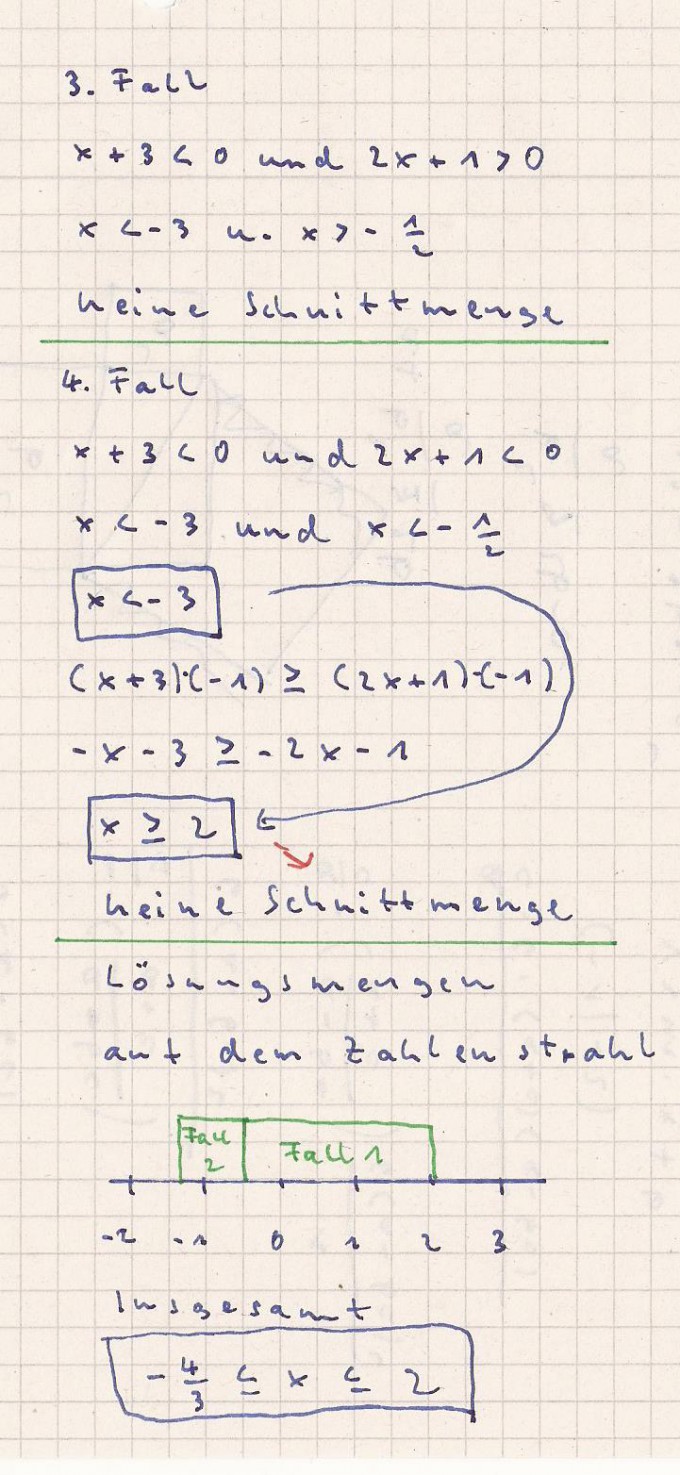 3. Fall
x + 3 < 0 und 2x + 1 > 0
x < - 3 u. x > - 1/2
keine Schnittmenge
4. Fall
x + 3 < 0 und 2x + 1 < 0
x < - 3 und x < - 1/2
x < - 3
(x+3)·(-1) ≥ (2x+1)·(-1)
- x - 3 ≥ - 2x - 1
x ≥ 2
keine Schnittmenge
Lösungsmengen
auf dem Zahlenstrahl
Fall 2 Fall 1
-2 -1 0 1 2 3
Insgesamt
- 4/3 ≤ x ≤ 2